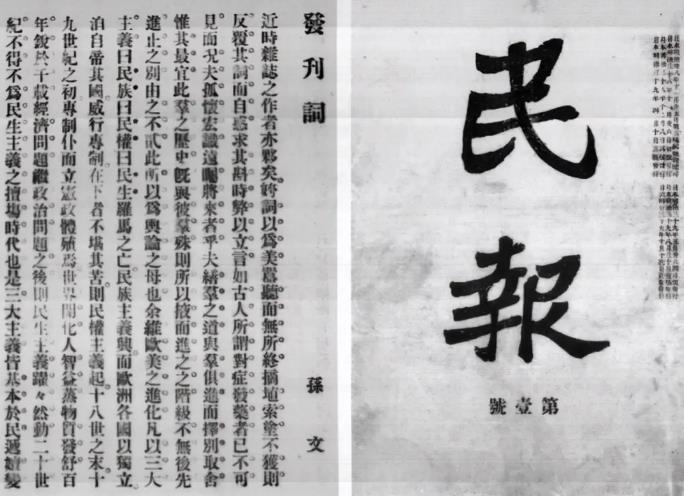 民報
第壹號
發刊詞
孫文
近時雜誌之作者亦夥矣姱詞以爲美囂聽而無所終摘埴索塗不獲則
反覆其詞而自惑求其斟時弊以立言如古人所謂對症發藥者已不可
見而况夫孤懷宏識遠矚將來者乎夫繕羣之道與羣俱進而擇別取舍
惟其最宜此羣之歷史旣與彼羣殊則所以掖而進之之階級不無後先
進止之別由之不貳此所以爲輿論之母也余維歐美之進化凡以三大
主義曰民族曰民權曰民生羅馬之亡民族主義興而歐洲各國以獨立
洎自帝其國威行專制在下者不堪其苦則民權主義起十八世之末十
九世紀之初專制仆而立憲政體殖焉世界開化人智益蒸物質發舒百
年銳於千載經濟問題繼政治問題之後則民生主義躍々然動二十世
紀不得不爲民生主義之擅場時代也是三大主義皆基本於民遞嬗變